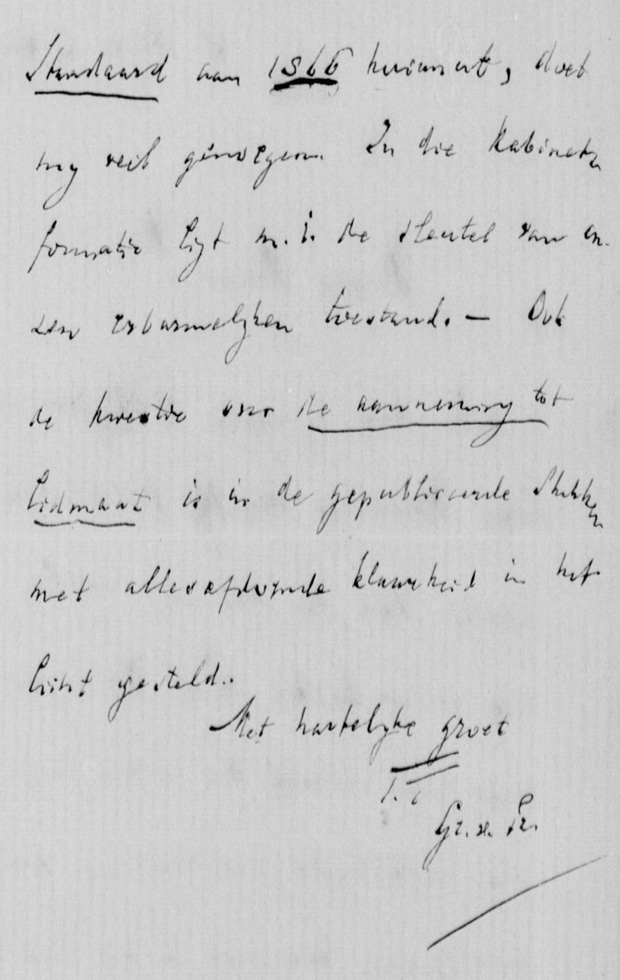 Standaard aan 1866 herinnert, doet
my veel genoegen. In die Kabinets
formatie ligt m.i. de sleutel van on-
zen erbarmelyken toestand. — Ook
de kwestie over de aanneming tot
Lidmaat is in de gepubliceerde Stukken
met allesafdoende klaarheid in het
licht gesteld.
Met hartelyke groet
t.t.
Gr. v. Pr.